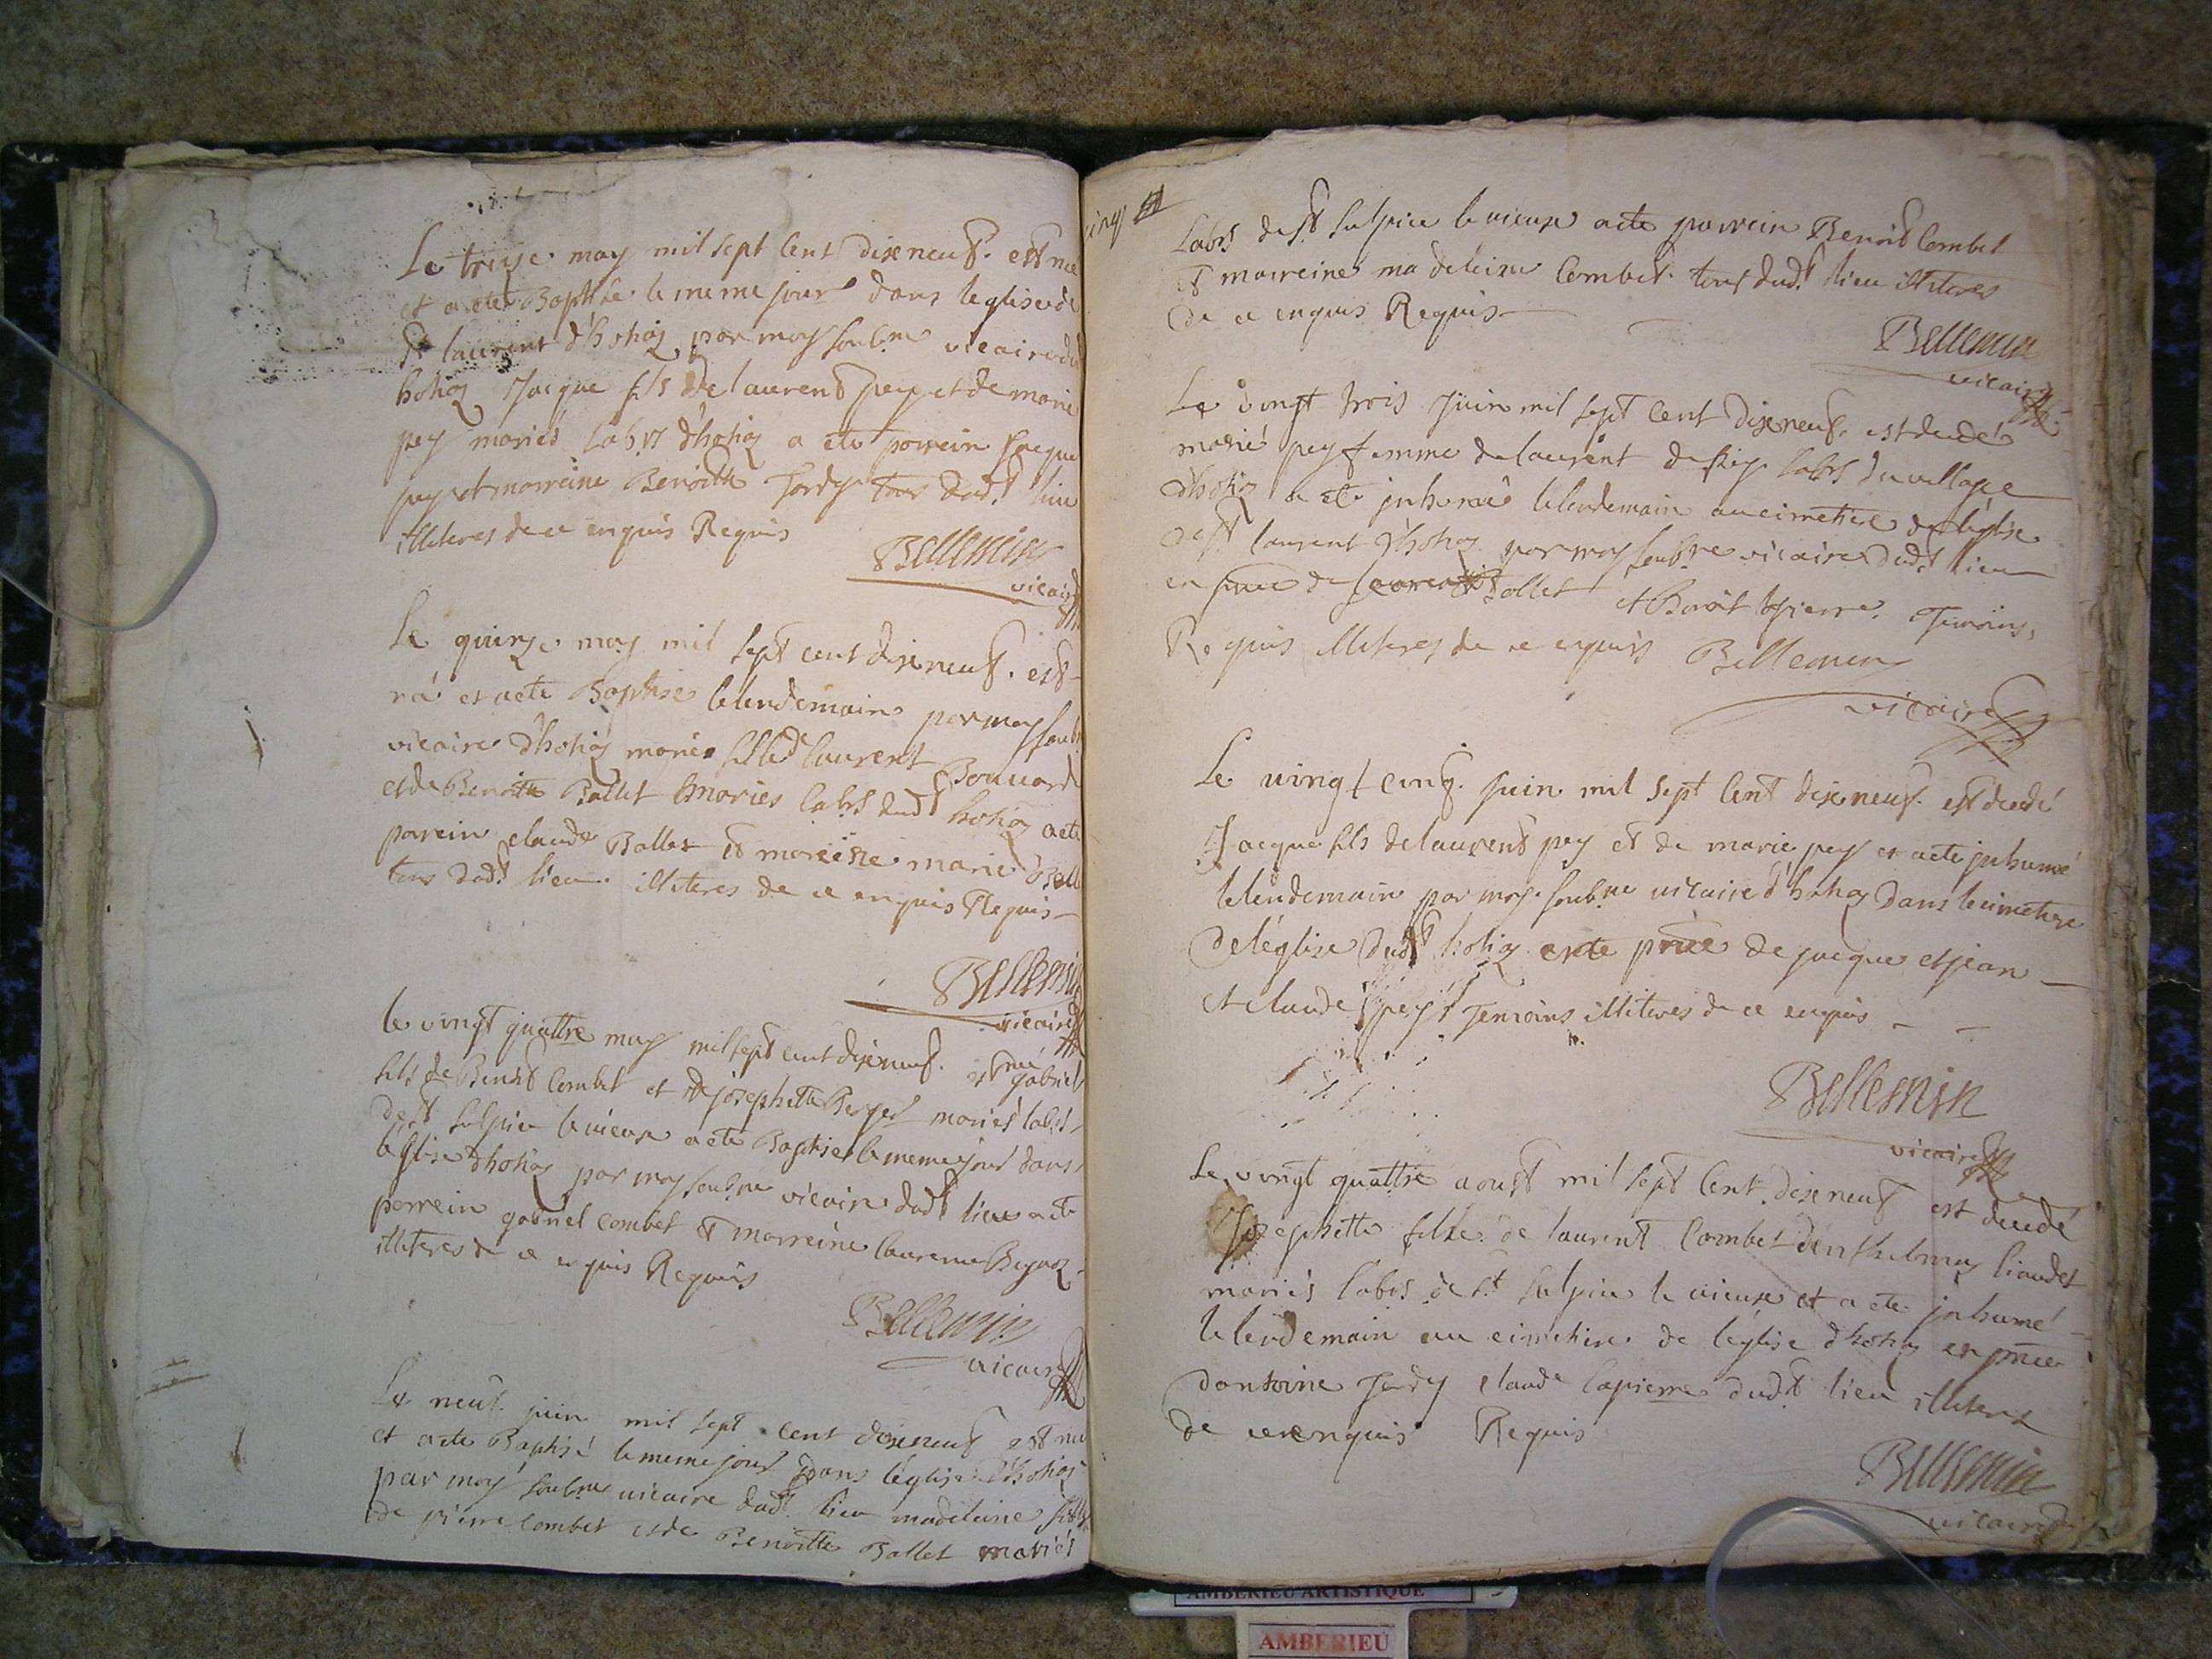 Le treize may mil sept Cent dixneuf. est né
et a eté Baptisé le meme jour dans leglise de
St laurent d'hohaz par moy soub.ne vicaire dud
hohaz Jacque fils de laurent pey et de marie
pey mariés lab.rs d'hohaz a ete parrein Jacque
pey et marreine Benoitte Tardy tous dud.t lieu
illiteres de ce enquis Requis
Bellemin
vicaire
Le quinze may mil sept cent dixneuf. est
né et a ete Baptisé le lendemain par moy soub
vicaire d'hohaz marie fille de laurent Bouvard
et de Benoitte Ballet mariés labrs dud.t hohaz a ete
parein claude Ballet et mareine marie Ball
tous dud.t lieu illiteres de ce enquis Requis
Bellemin
vicaire
le vingt quattre may mil sept cent dixneuf. est né gabriel
fils de Benoit Combet et de josephette Berger mariés labrs
de St sulpice le vieux a ete Baptisé le meme jour dans
léglise d'hohaz par moy soub.ne vicaire dud.t lieu a ete
parrein gabriel Combet et marreine laurence
illiteres de ce enquis Requis
Bellemin
vicaire
Le neuf juin mil sept cent dixneuf est né
et a ete Baptisé le meme jour dans léglise d'hohaz
par moy soub.ne vicaire dud.t lieu madeleine fille
de pierre Combet et de Benoitte Ballet mariés
cinq
labrs de St sulpice le vieux a ete parrein Benoit Combet
et marreine madeleine Combet tous dud.t lieu illiteres
de ce enquis Requis
Bellemin
vicaire
Le vingt trois Juin mil sept Cent Dixneuf. est decedé
marie pey femme de laurent labrs du village
d'hohaz a ete inhumé le lendemain au cimetiere de léglise
de St laurent d'hohaz par moy soub.ne vicaire dud.t lieu
en pnce de Ballet et Benoit lapierre Temoins
Requis illiteres de ce enquis Bellemin
vicaire
Le vingt cinq. Juin mil sept Cent dixneuf. est decedé
Jacque fils de laurent pey et de marie pey et a ete inhumé
le lendemain par moy soub.ne vicaire d'hohaz Dans le cimetiere
de léglise dud.t hohaz pnce de jacque et jean
et claude pey Temoins illiteres de ce enquis
Bellemin
vicaire
Le vingt quattre aoust mil sept Cent dixneuf est decedé
Josephette fille de laurent Combet liaudet
mariés labrs de St sulpice le vieux et a ete inhumé
le lendemain au cimetiere de léglise d'hohaz en pnce
dantoine Tardy claude lapierre dud.t lieu illiteres
de ce enquis Requis
Bellemin
vicaire
AMBERIEU ARTISTIQUE
AMBERIEU